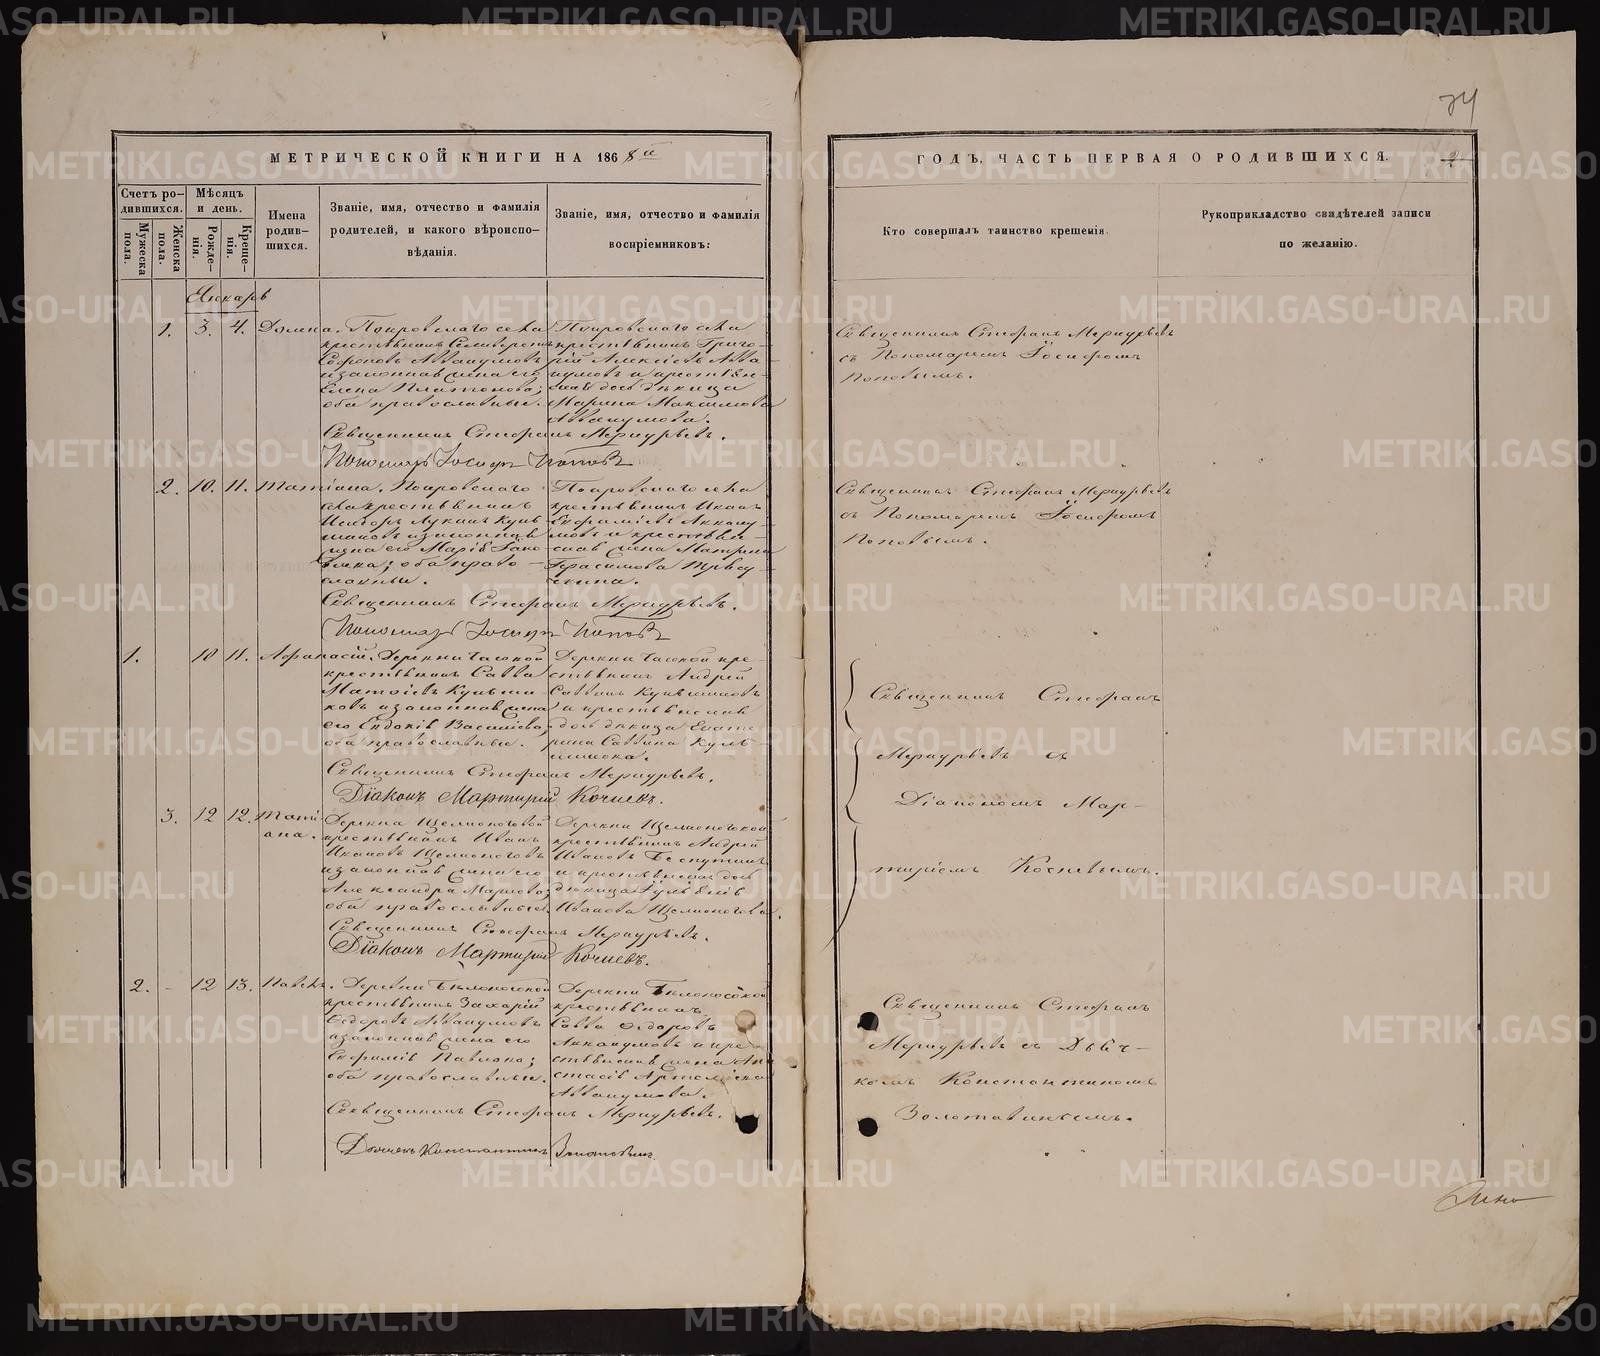 74
МЕТРИЧЕСКОЙ КНИГИ НА 1868й
Счетъ ро-
дившихся.
Мужеска
пола.
Женска
пола.
Мѣсяцъ
и день.
Рожде-
нія.
Креще-
нія.
Имена
родив-
шихся.
Званіе, имя, отчество и фамилія
родителей, и какого вѣроиспо-
вѣданія.
Званіе, имя, отчество и фамилія
воспріемниковъ:
Январь
1. 3. 4. Домна.
Покровскаго села
крестьянинъ Селиверстъ
Софоновъ Аввакумовъ
и законная жена его
Елена Платонова;
оба православные.
Покровскаго села
крестьянинъ Григо-
рій Алексѣевъ Авва-
кумовъ и крестьян-
ская дочь дѣвица
Марина Максимова
Аввакумова.
Священникъ Стефанъ Меркурьевъ.
Пономарь Іосифъ Поповъ
2. 10. 11. Татіана.
Покровскаго
села крестьянинъ
законная
жена его Марія
оба право-
славные.
Покровскаго села
крестьянинъ Иванъ
Аввакумовъ
и крестьян-
ская жена Матрена
Герасимова
Священникъ Стефанъ Меркурьевъ.
Пономарь Іосифъ Поповъ
1. 10 11. Афанасій.
Деревни Часовой
крестьянинъ Савва
и законная жена
его Евдокія Василіева,
оба православные.
Деревни Часовой кре-
стьянинъ Андрей
Саввинъ
и крестьянская
дочь дѣвица Екате-
рина Саввина
Священникъ Стефанъ Меркурьевъ.
Діаконъ Мартирій Кочневъ.
3. 12 12. Татi-
ана.
Деревни Щелконоговой
крестьянинъ Иванъ
Ивановъ Щелконоговъ
и законная жена его
Александра Маркова;
оба православные.
Деревни Щелконоговой
крестьянинъ Андрей
Ивановъ Беспутинъ
и крестьянская дочь
дѣвица
Иванова Щелконогова.
Священникъ Стефанъ Меркурьевъ.
Діаконъ Мартирій Кочневъ.
2. - 12 13. Павелъ.
Деревни Бѣлоносовой
крестьянинъ Захарій
Федоровъ Аввакумовъ
и законная жена его
Евфимія Павлова;
оба православные.
Деревни Бѣлоносовой
крестьянинъ
Савва Федоровъ
Аввакумовъ и кре-
стьянская жена Ана-
стасія
Аввакумова.
Священникъ Стефанъ Меркурьевъ.
Дьячекъ Константинъ
ГОДЪ, ЧАСТЬ ПЕРВАЯ О РОДИВШИХСЯ.
2
Кто совершалъ таинство крещенія.
Рукоприкладство свидѣтелей записи
по желанію.
Священникъ Стефанъ Меркурьевъ
съ Пономаремъ Іосифомъ
Поповымъ.
Священникъ Стефанъ Меркурьевъ
съ Пономаремъ Іосифомъ
Поповымъ.
Священникъ Стефанъ
Меркурьевъ съ
Діакономъ Мар-
тиріемъ Кочневымъ.
Священникъ Стефанъ
Меркурьевъ съ Дьяч-
комъ Константиномъ
METRIKI.GASO-URAL.RU